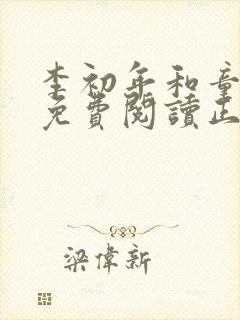 李初年和童
免費閱讀正
梁偉新